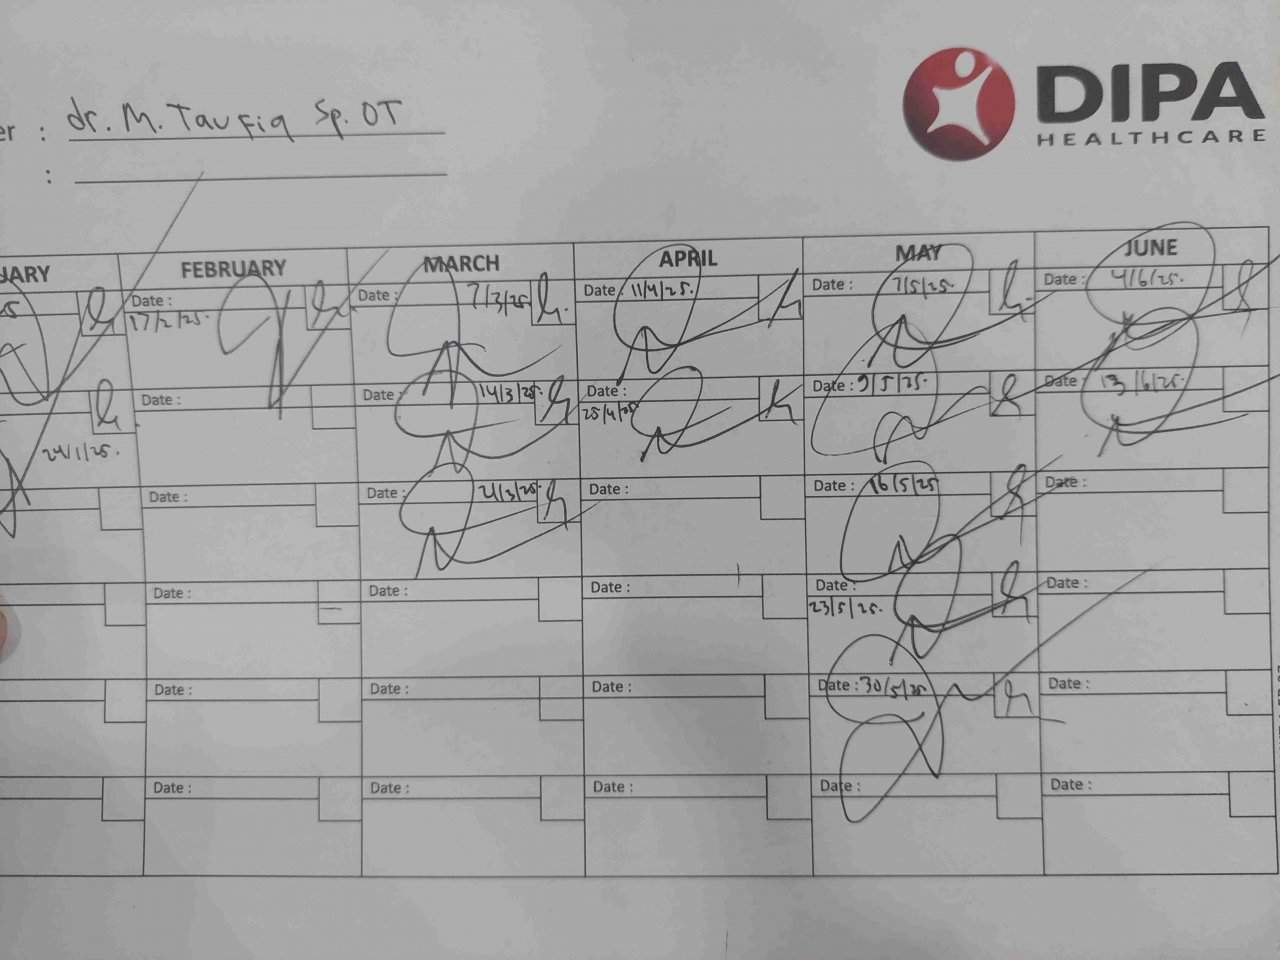 er : dr. M. Taufiq Sp. OT
:
DIPA
HEALTHCARE
UARY FEBRUARY MARCH APRIL MAY JUNE
Date : Date : 7/3/25. Date : 11/4/25. Date : 7/5/25. Date : 4/6/25.
17/2/25.
Date : Date : 14/3/25. Date : Date : 9/5/25. Date : 13/6/25.
25/4/25
24/1/25.
Date : Date : 21/3/25. Date : Date : 16/5/25 Date :
Date : Date : Date : Date : Date :
23/5/25.
Date : Date : Date : Date : 30/5/25. Date :
Date : Date : Date : Date : Date :